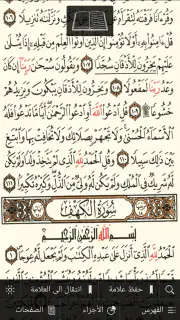 وَقُرْءَانًا فَرَقْنَٰهُ لِتَقْرَأَهُۥ
قُلْ ءَامِنُوا۟ بِهِۦٓ أَوْ لَا تُؤْمِنُوٓا۟ إِنَّ ٱلَّذِينَ أُوتُوا۟ ٱلْعِلْمَ مِن قَبْلِهِۦٓ إِذَا يُتْلَىٰ
عَلَيْهِمْ يَخِرُّونَ لِلْأَذْقَانِ سُجَّدًا ۝١٠٧ وَيَقُولُونَ سُبْحَٰنَ رَبِّنَآ إِن كَانَ
وَعْدُ رَبِّنَا لَمَفْعُولًا ۝١٠٨ وَيَخِرُّونَ لِلْأَذْقَانِ يَبْكُونَ وَيَزِيدُهُمْ
خُشُوعًا ۩ ۝١٠٩ قُلِ ٱدْعُوا۟ ٱللَّهَ أَوِ ٱدْعُوا۟ ٱلرَّحْمَٰنَ أَيًّا مَّا تَدْعُوا۟ فَلَهُ
ٱلْأَسْمَآءُ ٱلْحُسْنَىٰ وَلَا تَجْهَرْ بِصَلَاتِكَ وَلَا تُخَافِتْ بِهَا وَٱبْتَغِ
بَيْنَ ذَٰلِكَ سَبِيلًا ۝١١٠ وَقُلِ ٱلْحَمْدُ لِلَّهِ ٱلَّذِى لَمْ يَتَّخِذْ وَلَدًا وَلَمْ يَكُن لَّهُۥ
شَرِيكٌ فِى ٱلْمُلْكِ وَلَمْ يَكُن لَّهُۥ وَلِىٌّ مِّنَ ٱلذُّلِّ وَكَبِّرْهُ تَكْبِيرًۢا ۝١١١
سُورَةُ الْكَهْفِ
بِسْمِ ٱللَّهِ ٱلرَّحْمَٰنِ ٱلرَّحِيمِ
ٱلْحَمْدُ لِلَّهِ ٱلَّذِىٓ أَنزَلَ عَلَىٰ عَبْدِهِ ٱلْكِتَٰبَ وَلَمْ يَجْعَل لَّهُۥ عِوَجَا ۝١
حفظ علامة
انتقال الى العلامة
الفهرس
الأجزاء
الصفحات